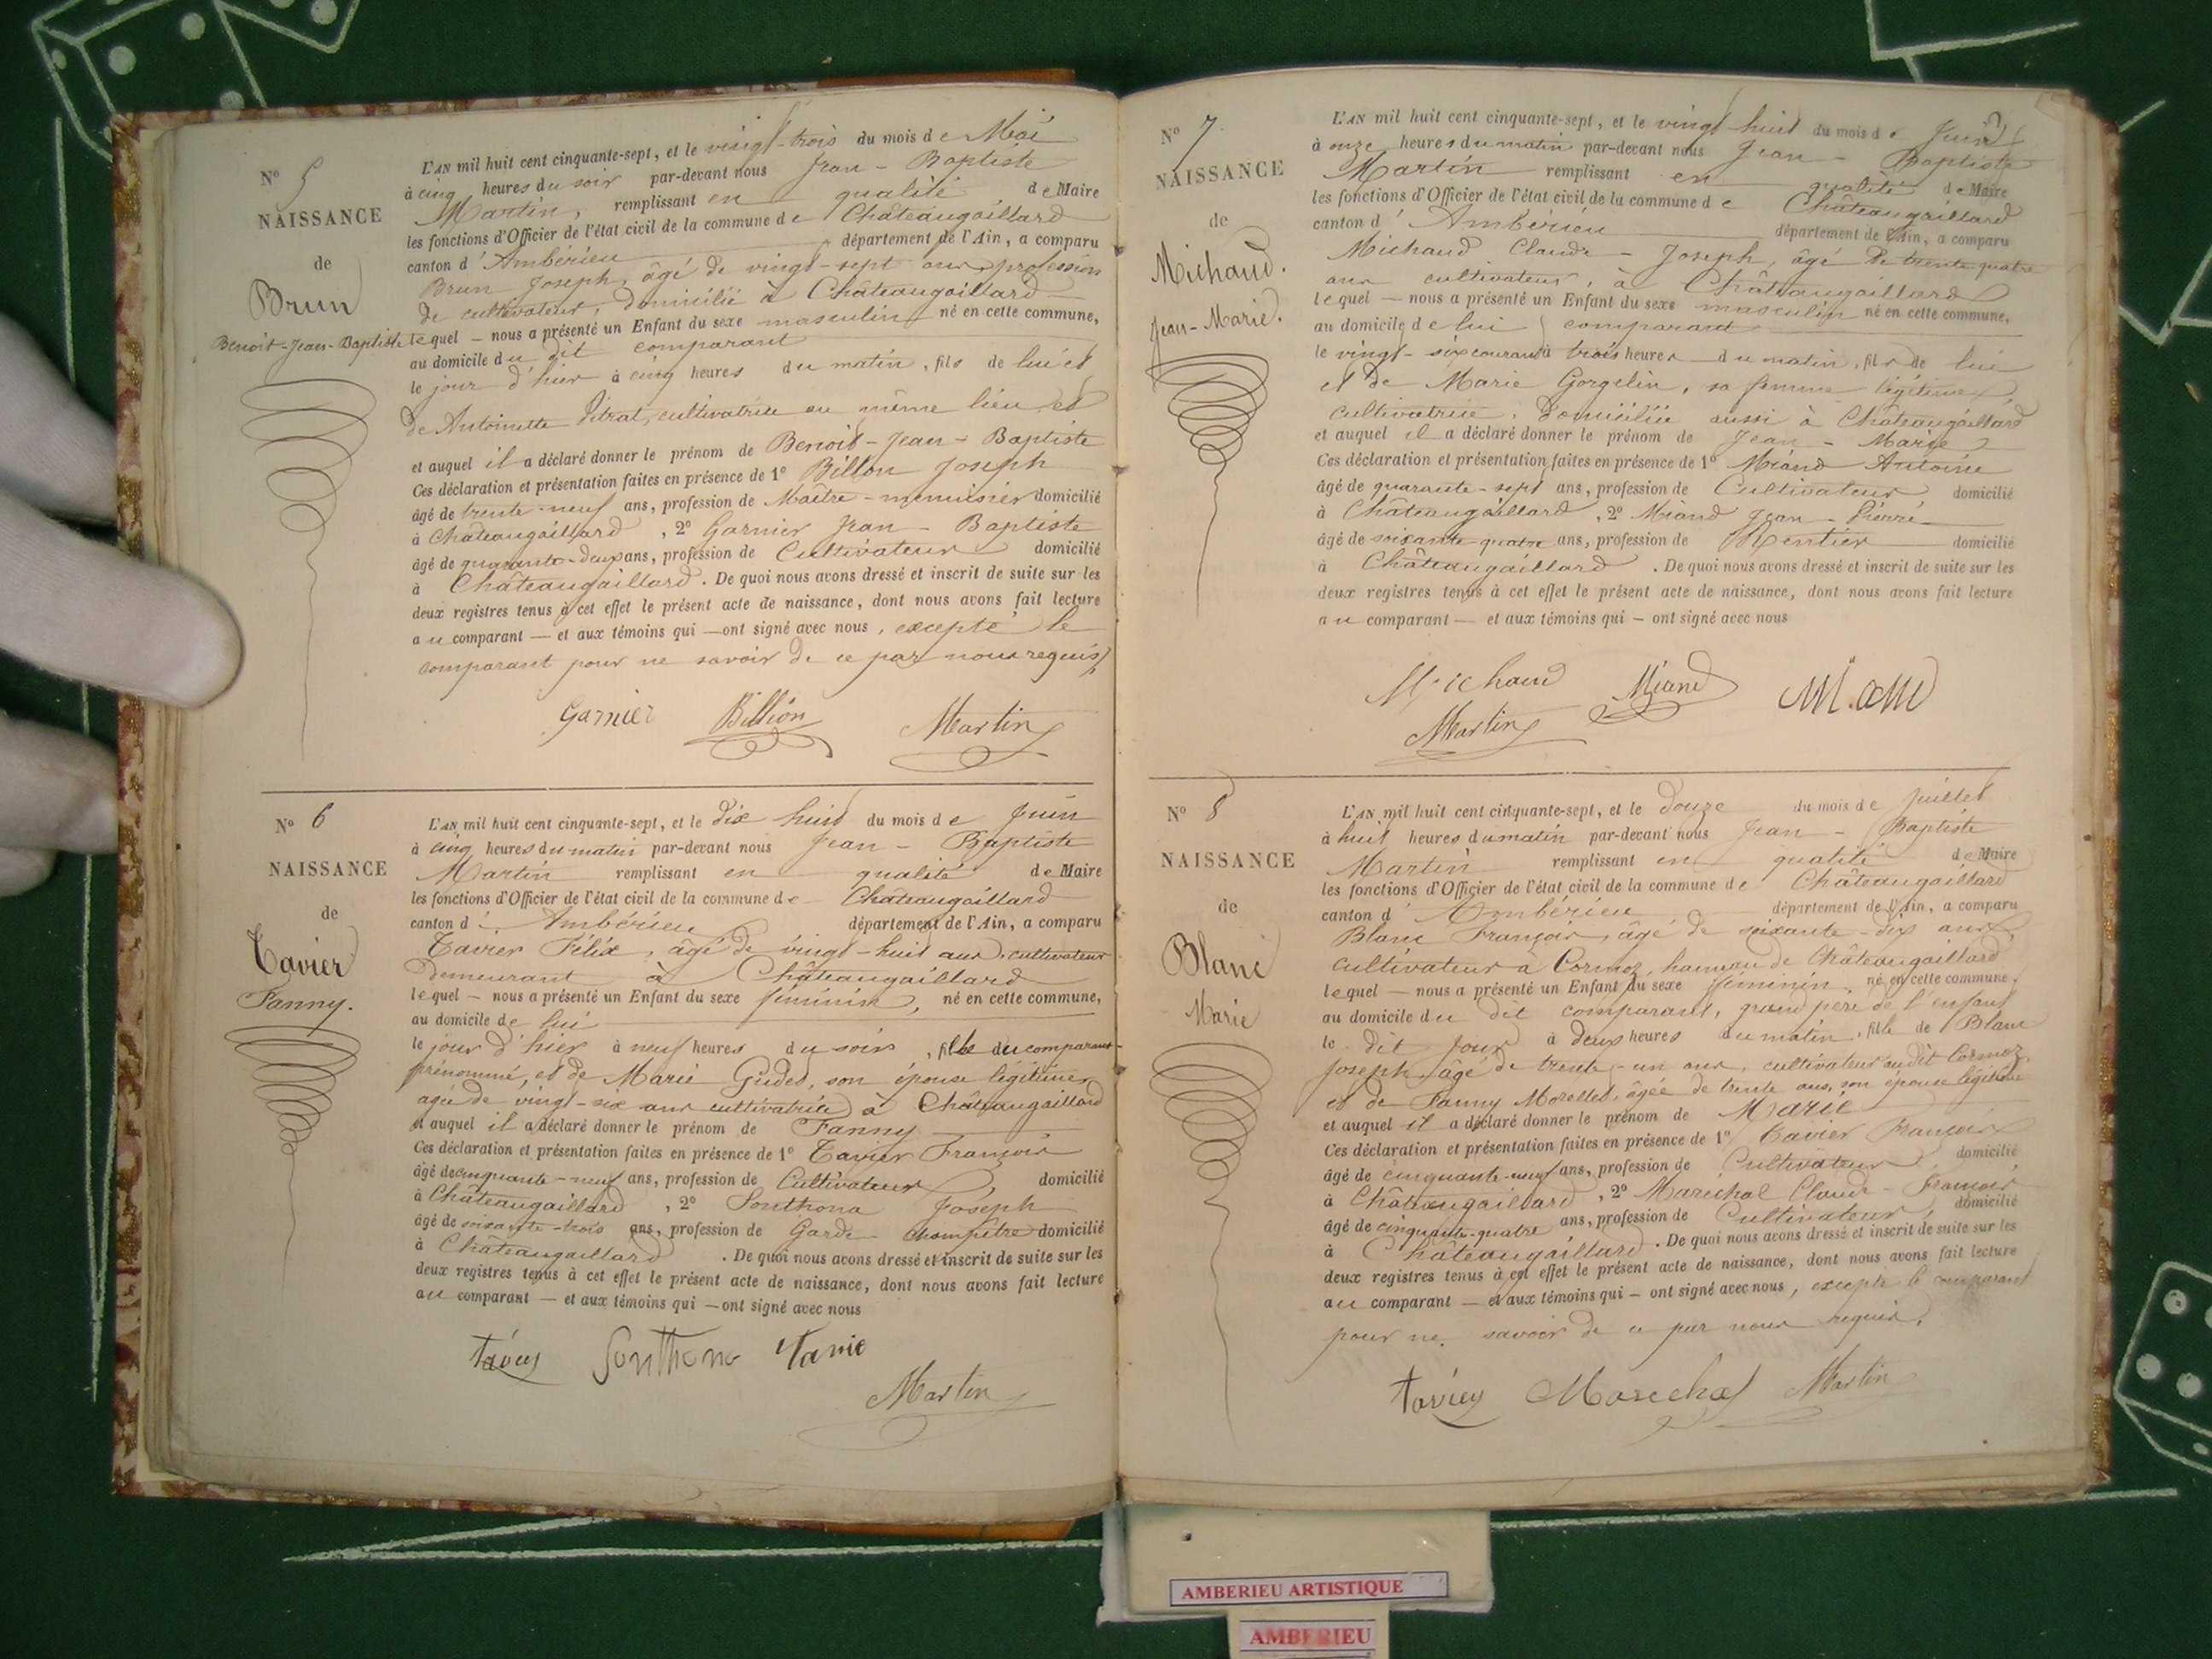 N° 5
NAISSANCE
de
Brun
Benoit-Jean-Baptiste
L'AN mil huit cent cinquante-sept, et le vingt-trois du mois de Mai
à cinq heures du soir par-devant nous Jean-Baptiste
Martin, remplissant en qualité de Maire
les fonctions d'Officier de l'état civil de la commune de Châteaugaillard
canton d'Ambérieu département de l'Ain, a comparu
Brun Joseph, âgé de vingt-sept ans, profession
de cultivateur, domicilié à Châteaugaillard
lequel — nous a présenté un Enfant du sexe masculin né en cette commune,
au domicile du dit comparant
le jour d'hier à cinq heures du matin, fils de lui et
de Antoinette Vitrat, cultivatrice au même lieu et
et auquel il a déclaré donner le prénom de Benoit-Jean-Baptiste
Ces déclaration et présentation faites en présence de 1° Billon Joseph
âgé de trente-neuf ans, profession de Maître-menuisier domicilié
à Châteaugaillard, 2° Garnier Jean-Baptiste
âgé de quarante-deux ans, profession de Cultivateur domicilié
à Châteaugaillard. De quoi nous avons dressé et inscrit de suite sur les
deux registres tenus à cet effet le présent acte de naissance, dont nous avons fait lecture
au comparant — et aux témoins qui — ont signé avec nous, excepté le
comparant pour ne savoir de ce par nous requis
Garnier Billion Martin
N° 6
NAISSANCE
de
Tavier
Fanny.
L'AN mil huit cent cinquante-sept, et le dix huit du mois de Juin
à cinq heures du matin par-devant nous Jean-Baptiste
Martin remplissant en qualité de Maire
les fonctions d'Officier de l'état civil de la commune de Châteaugaillard
canton d'Ambérieu département de l'Ain, a comparu
Tavier Félix, âgé de vingt-huit ans, cultivateur
demeurant à Châteaugaillard
lequel — nous a présenté un Enfant du sexe féminin, né en cette commune,
au domicile de lui
le jour d'hier à neuf heures du soir, fille du comparant
prénommé, et de Marie Gudet, son épouse légitime
agée de vingt-six ans cultivatrice à Châteaugaillard
et auquel il a déclaré donner le prénom de Fanny
Ces déclaration et présentation faites en présence de 1° Tavier François
âgé de cinquante-neuf ans, profession de Cultivateur, domicilié
à Châteaugaillard, 2° Sonthona Joseph
âgé de soixante-trois ans, profession de Garde champêtre domicilié
à Châteaugaillard. De quoi nous avons dressé et inscrit de suite sur les
deux registres tenus à cet effet le présent acte de naissance, dont nous avons fait lecture
au comparant — et aux témoins qui — ont signé avec nous
Sonthona
Martin
N° 7
NAISSANCE
de
Michaud.
Jean-Marie.
L'AN mil huit cent cinquante-sept, et le vingt huit du mois de Juin
à onze heures du matin par-devant nous Jean-Baptiste
Martin remplissant en qualité de Maire
les fonctions d'Officier de l'état civil de la commune de Châteaugaillard
canton d'Ambérieu département de l'Ain, a comparu
Michaud Claude-Joseph, âgé de trente quatre
ans cultivateur, à Châteaugaillard
lequel — nous a présenté un Enfant du sexe masculin né en cette commune,
au domicile de lui comparant
le vingt-six courant à trois heures du matin, fils de lui
et de Marie Gorgelin, sa femme légitime,
cultivatrice, domiciliée aussi à Châteaugaillard
et auquel il a déclaré donner le prénom de Jean-Marie
Ces déclaration et présentation faites en présence de 1° Miand Antoine
âgé de quarante-sept ans, profession de Cultivateur domicilié
à Châteaugaillard, 2° Miand Jean-Pierre
âgé de soixante quatre ans, profession de Rentier domicilié
à Châteaugaillard. De quoi nous avons dressé et inscrit de suite sur les
deux registres tenus à cet effet le présent acte de naissance, dont nous avons fait lecture
au comparant — et aux témoins qui — ont signé avec nous
Michaud Miand
Martin
N° 8
NAISSANCE
de
Blanc
Marie
L'AN mil huit cent cinquante-sept, et le douze du mois de Juillet
à huit heures du matin par-devant nous Jean-Baptiste
Martin remplissant en qualité de Maire
les fonctions d'Officier de l'état civil de la commune de Châteaugaillard
canton d'Ambérieu département de l'Ain, a comparu
Blanc François, âgé de soixante-dix ans,
cultivateur à Cormoz, hameau de Châteaugaillard
lequel — nous a présenté un Enfant du sexe féminin, né en cette commune,
au domicile du dit comparant, grand père de l'enfant
le dit jour à deux heures du matin, fille de Blanc
Joseph âgé de trente-un ans, cultivateur au dit Cormoz
et de Fanny Morellet, âgée de trente ans, son épouse légitime
et auquel il a déclaré donner le prénom de Marie
Ces déclaration et présentation faites en présence de 1° Tavier François
âgé de cinquante-neuf ans, profession de Cultivateur, domicilié
à Châteaugaillard, 2° Maréchal Claude-François
âgé de cinquante-quatre ans, profession de Cultivateur, domicilié
à Châteaugaillard. De quoi nous avons dressé et inscrit de suite sur les
deux registres tenus à cet effet le présent acte de naissance, dont nous avons fait lecture
au comparant — et aux témoins qui — ont signé avec nous, excepté le comparant
pour ne savoir de ce par nous requis.
Marechal Martin
AMBERIEU ARTISTIQUE
AMBERIEU